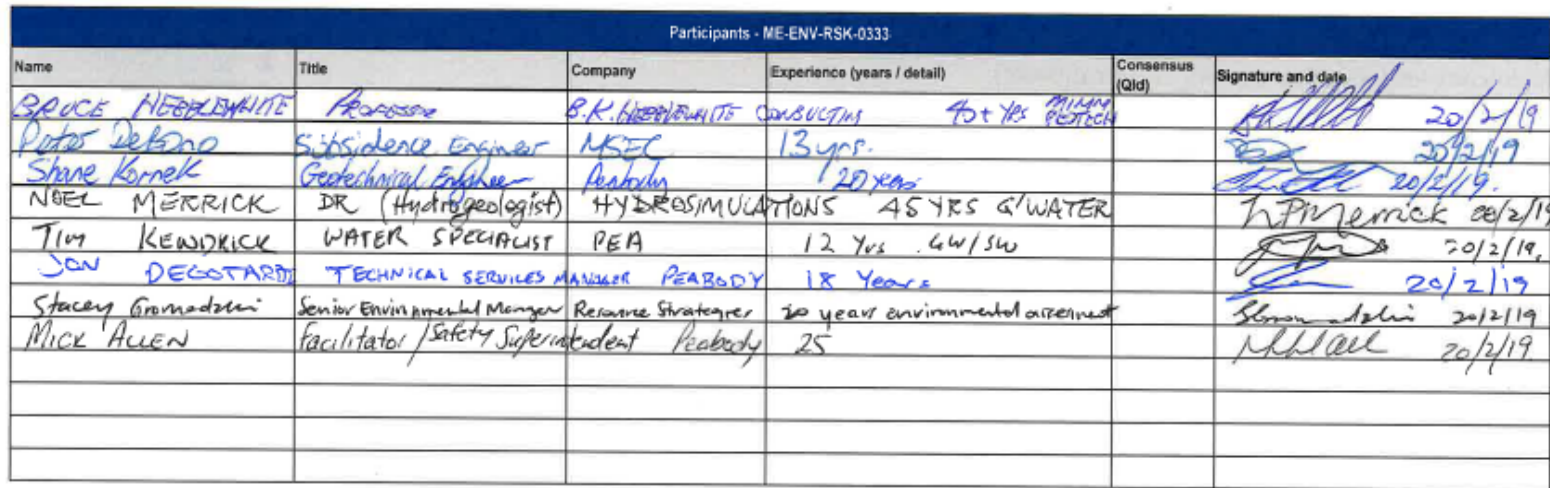 Participants - ME-ENV-RSK-0333
Name Title Company Experience (years / detail) Consensus (Qld) Signature and date
BRUCE HEBBLEWHITE PROFESSOR B.K. HEBBLEWHITE CONSULTING 40+ YRS MINING GEOTECH 20/2/19
Peter DeBono Subsidence Engineer MSEC 13 yrs. 20/2/19
Shane Kornek Geotechnical Engineer Peabody 20 years 20/2/19.
NOEL MERRICK DR (Hydrogeologist) HYDROSIMULATIONS 45 YRS G'WATER N P Merrick 20/2/19
TIM KENDRICK WATER SPECIALIST PEA 12 Yrs GW/SW 20/2/19.
JON DEGOTARDI TECHNICAL SERVICES MANAGER PEABODY 18 Years 20/2/19
Stacey Gromadzki Senior Environmental Manager Resource Strategies 20 years environmental assessment SGromadzki 20/2/19
MICK ALLEN Facilitator / Safety Superintendent Peabody 25 20/2/19.